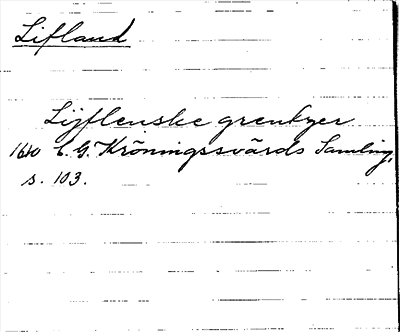 Lifland
Lijflenske grenkzer
1640 C. G. Kröningssvärds Samling,
s. 103.